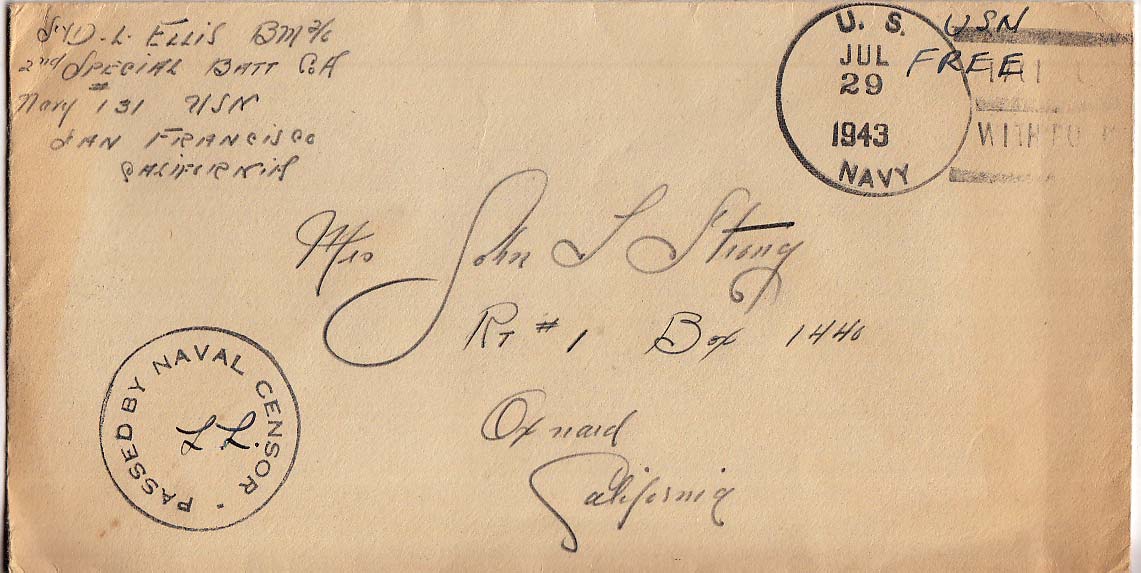 SYD. L. ELLIS BM 2/c
2nd SPECIAL BATT Co A
Navy # 131 USN
SAN FRANCISCO
CALIFORNIA
U. S.
JUL
29
1943
NAVY
USN
FREE
WITH YO
Mrs John L Strong
RT # 1 Box 1440
Oxnard
California
PASSED BY NAVAL CENSOR
LL.